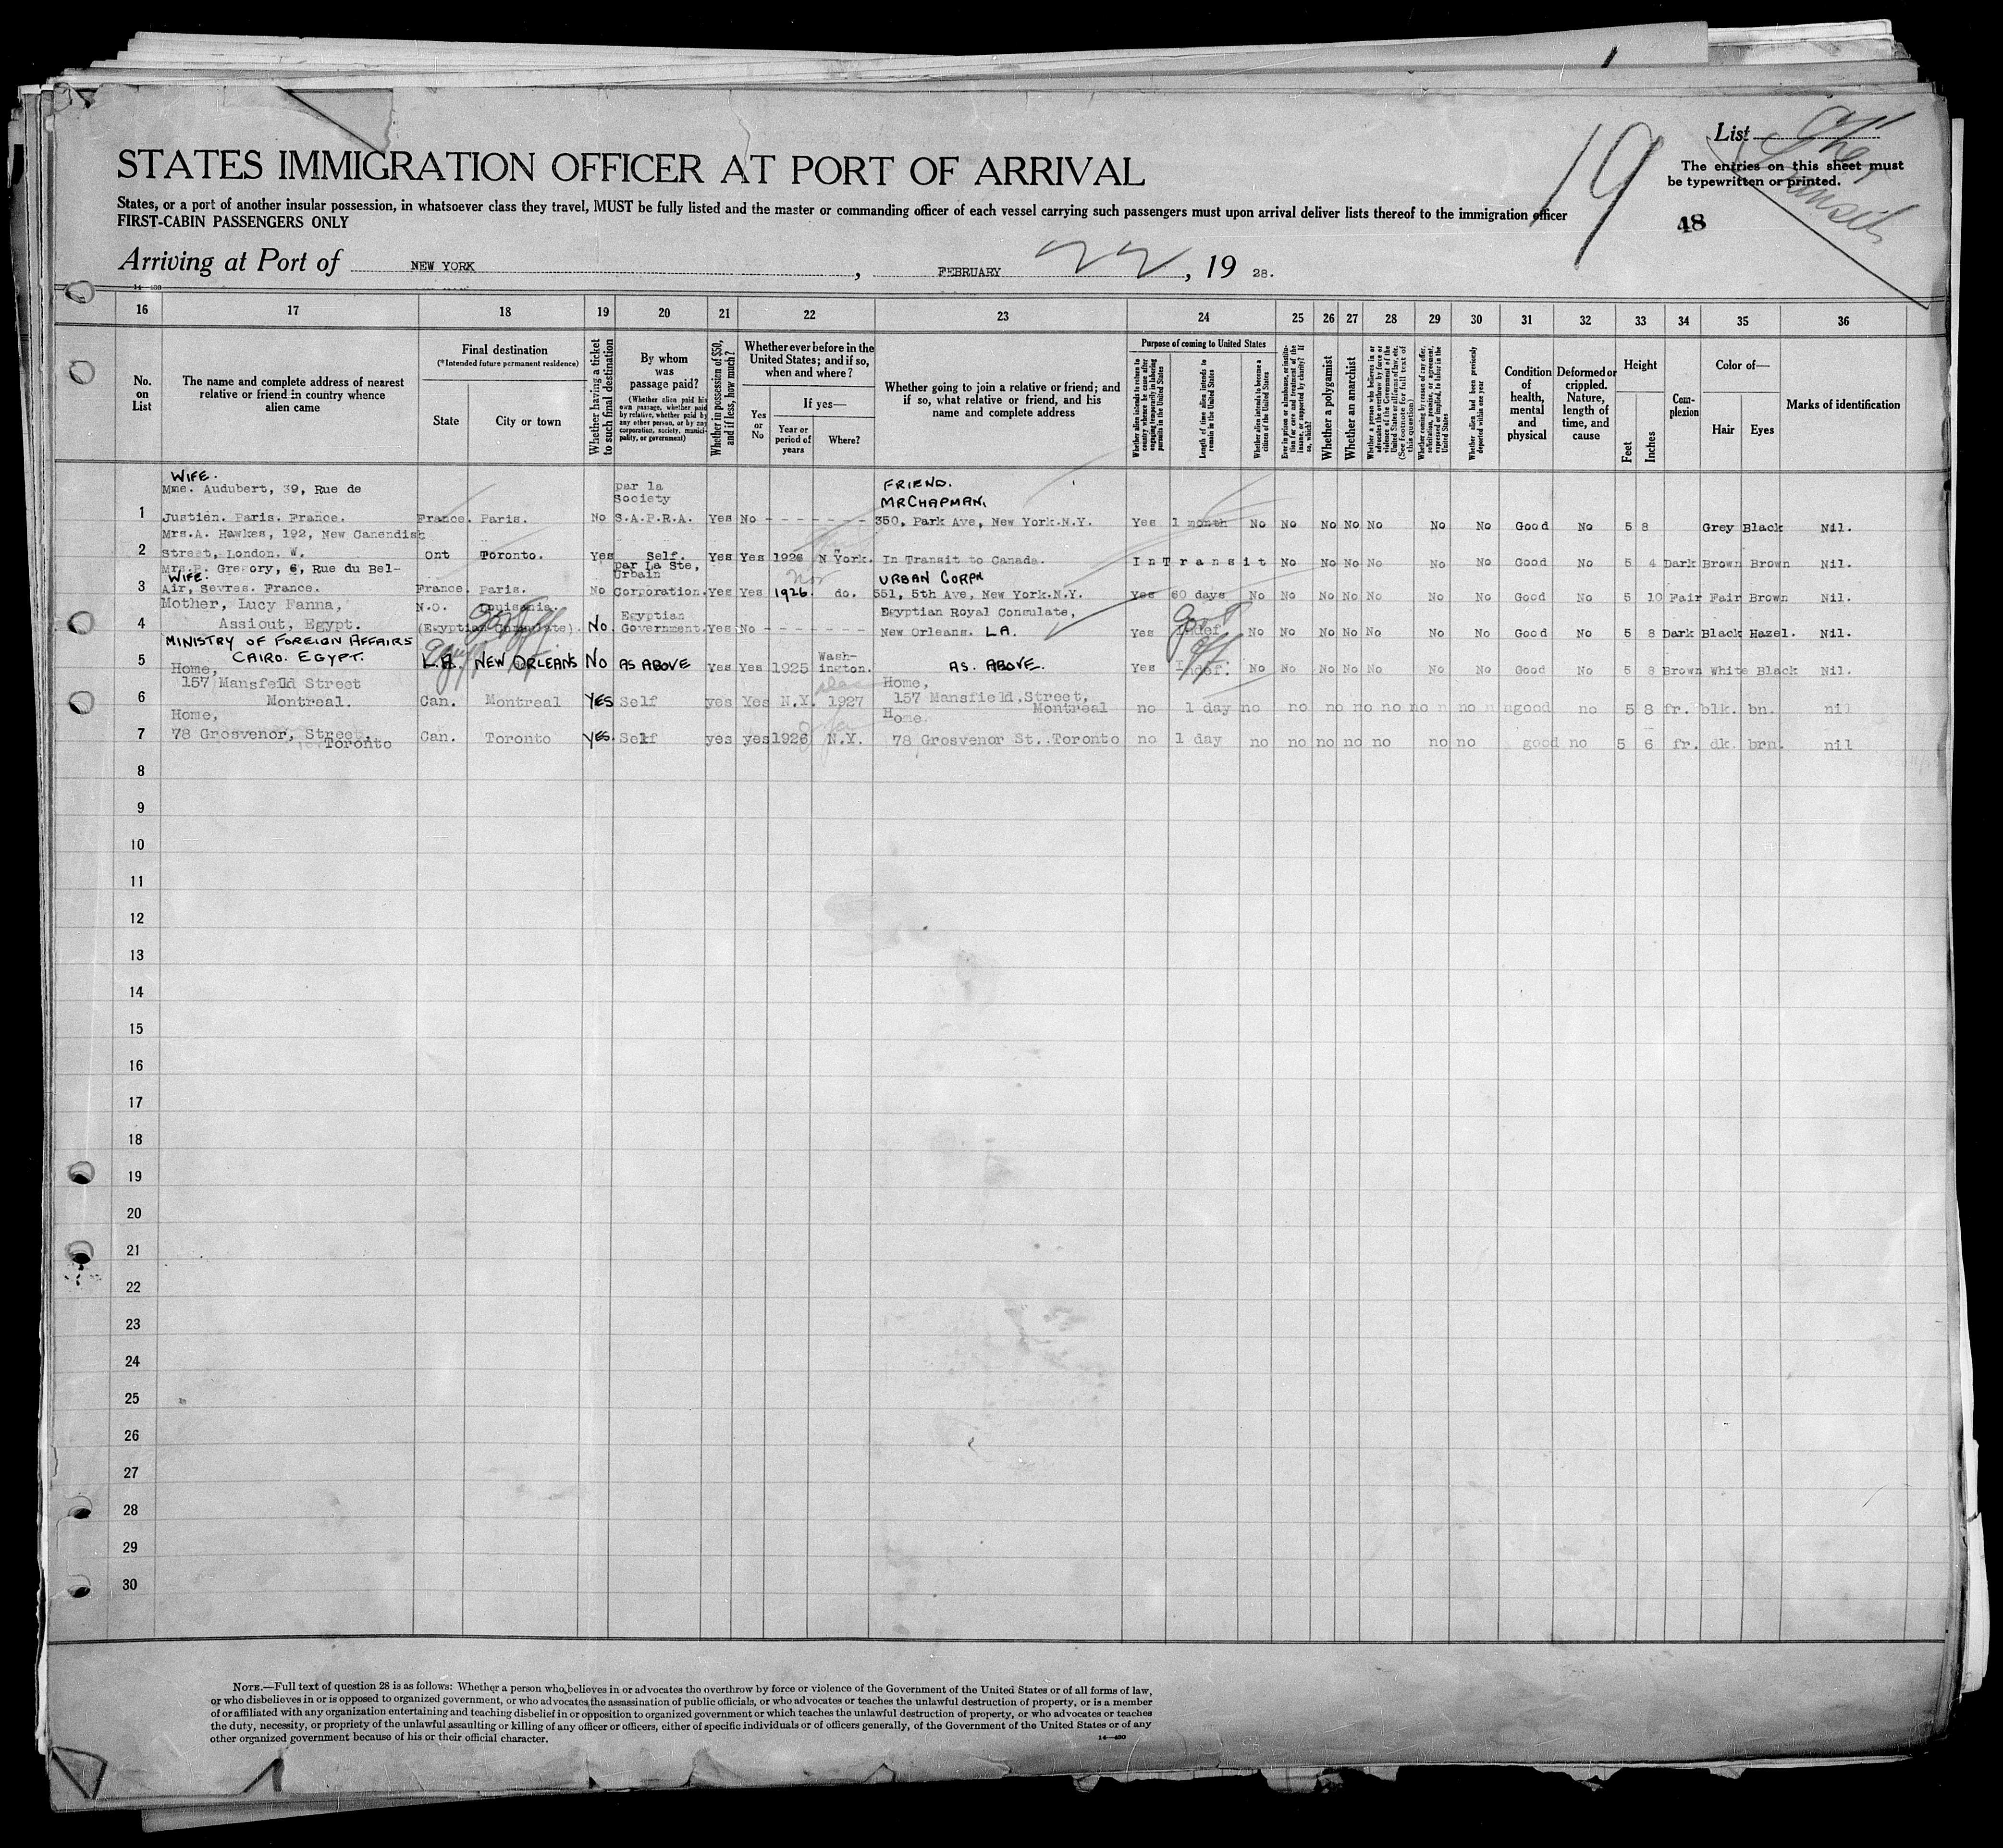 List
The entries on this sheet must
be typewritten or printed.
19
48
STATES IMMIGRATION OFFICER AT PORT OF ARRIVAL
States, or a port of another insular possession, in whatsoever class they travel, MUST be fully listed and the master or commanding officer of each vessel carrying such passengers must upon arrival deliver lists thereof to the immigration officer
FIRST-CABIN PASSENGERS ONLY
Arriving at Port of NEW YORK, FEBRUARY 22, 19 28.
16 17 18 19 20 21 22 23 24 25 26 27 28 29 30 31 32 33 34 35 36
No. on List
The name and complete address of nearest relative or friend in country whence alien came
Final destination
(*Intended future permanent residence)
State
City or town
Whether having a ticket to such final destination
By whom was passage paid?
(Whether alien paid his own passage, whether paid by relative, whether paid by any other person, or by any corporation, society, municipality, or government)
Whether in possession of $50, and if less, how much?
Whether ever before in the United States; and if so, when and where?
Yes or No
If yes—
Year or period of years
Where?
Whether going to join a relative or friend; and if so, what relative or friend, and his name and complete address
Purpose of coming to United States
Whether alien intends to return to country whence he came after engaging temporarily in laboring pursuits in the United States
Length of time alien intends to remain in the United States
Whether alien intends to become a citizen of the United States
Ever in prison or almshouse, or institution for care and treatment of the insane, or supported by charity? If so, which?
Whether a polygamist
Whether an anarchist
Whether a person who believes in or advocates the overthrow by force or violence of the Government of the United States or all forms of law, etc. (See footnote for full text of this question)
Whether coming by reason of any offer, solicitation, promise, or agreement, expressed or implied, to labor in the United States
Whether alien had been previously deported within one year
Condition of health, mental and physical
Deformed or crippled. Nature, length of time, and cause
Height
Feet
Inches
Complexion
Color of—
Hair
Eyes
Marks of identification
WIFE.
Mme. Audubert, 39, Rue de par la Society FRIEND. MR CHAPMAN.
1 Justien. Paris. France. France. Paris. No S.A.P.R.A. Yes No - - - - - - - 350, Park Ave, New York.N.Y. Yes 1 month No No No No No No No Good No 5 8 Grey Black Nil.
Mrs.A. Hawkes, 192, New Canendish
2 Street, London. W. Ont Toronto. Yes Self. Yes Yes 1926 N York. In Transit to Canada. In Transit No No No No No No Good No 5 4 Dark Brown Brown Nil.
Mrs.P. Gregory, 6, Rue du Bel- par La Ste, Urbain
WIFE. URBAN CORPN
3 Air, Sevres. France. France. Paris. No Corporation. Yes Yes 1926. do. 551, 5th Ave, New York.N.Y. Yes 60 days No No No No No No No Good No 5 10 Fair Fair Brown Nil.
Mother, Lucy Fanna, N.O. Louisania. Egyptian Egyptian Royal Consulate,
4 Assiout, Egypt. (Egyptian Consulate). No. Government. Yes No - - - - - - - New Orleans. LA. Yes Indef. No No No No No No No Good No 5 8 Dark Black Hazel. Nil.
MINISTRY OF FOREIGN AFFAIRS
5 CAIRO. EGYPT. L.A. NEW ORLEANS No AS ABOVE Yes Yes 1925 Wash-ington. AS. ABOVE. Yes Indef. No No No No No No No Good No 5 8 Brown White Black Nil.
Home, Home,
157 Mansfeild Street 157 Mansfield Street,
6 Montreal. Can. Montreal YES Self yes Yes N.Y. 1927 Montreal no 1 day no no no no no no no good no 5 8 fr. blk. bn. nil
Home, Home.
7 78 Grosvenor, Street. Toronto Can. Toronto YES. Self yes yes 1926 N.Y. 78 Grosvenor St. Toronto no 1 day no no no no no no no good no 5 6 fr. dk. brn. nil
8
9
10
11
12
13
14
15
16
17
18
19
20
21
22
23
24
25
26
27
28
29
30
NOTE.—Full text of question 28 is as follows: Whether a person who believes in or advocates the overthrow by force or violence of the Government of the United States or of all forms of law,
or who disbelieves in or is opposed to organized government, or who advocates the assassination of public officials, or who advocates or teaches the unlawful destruction of property, or is a member
of or affiliated with any organization entertaining and teaching disbelief in or opposition to organized government or which teaches the unlawful destruction of property, or who advocates or teaches
the duty, necessity, or propriety of the unlawful assaulting or killing of any officer or officers, either of specific individuals or of officers generally, of the Government of the United States or of any
other organized government because of his or their official character.
14—430